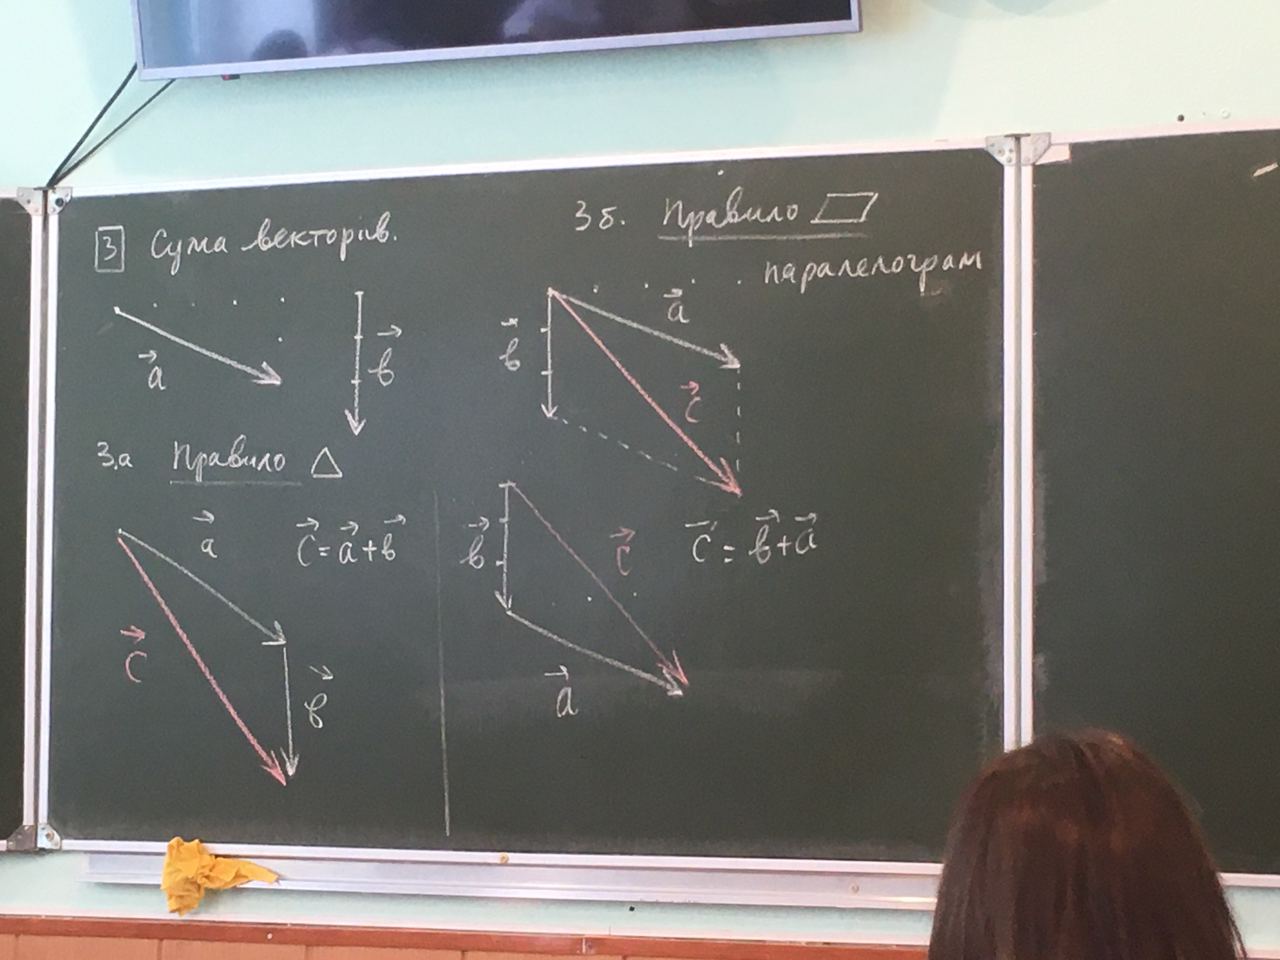 3 Сума векторів.
a
в
3.а Правило △
a
c = a + в
c
в
3б. Правило ▱
паралелограм
a
в
c
в
c
c = в + a
a